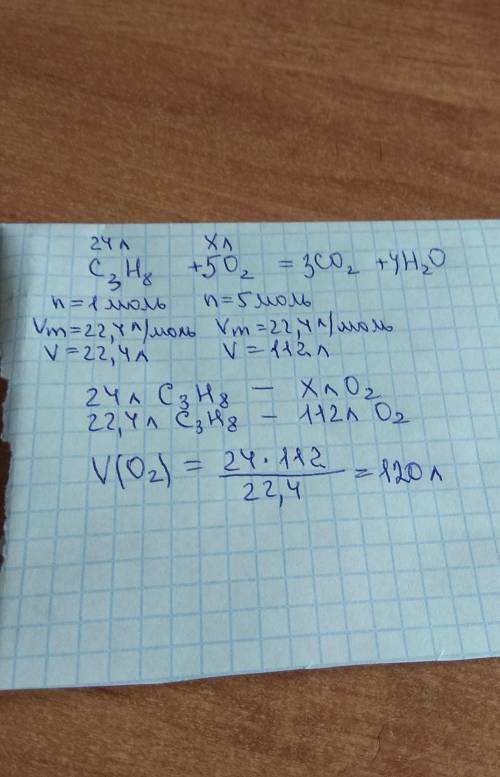 24л Xл
C₃H₈ +5O₂ =3CO₂ +4H₂O
n=1моль n=5моль
Vm=22,4л/моль Vm=22,4л/моль
V=22,4л V=112л
24л C₃H₈ — XлO₂
22,4л C₃H₈ — 112л O₂
V(O₂) = 24·112 / 22,4 =120л